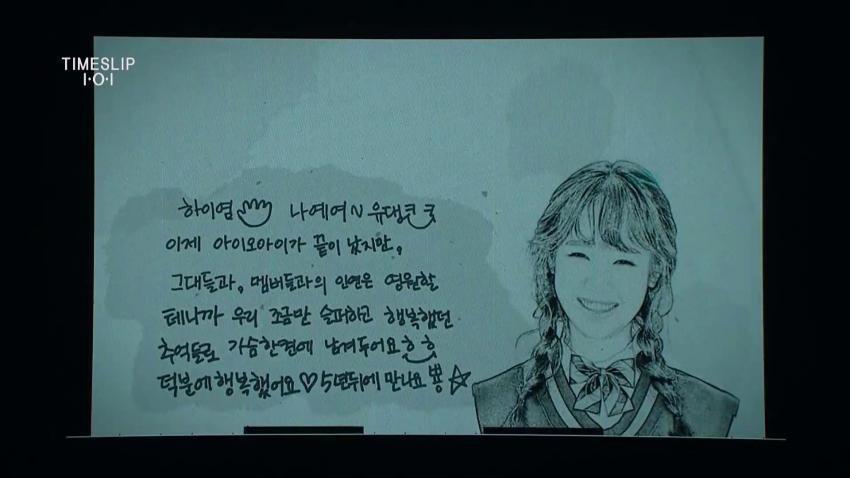 TIMESLIP
I·O·I
하이염 나예여~ 유댕쿄ㅋ
이제 아이오아이가 끝이 났지만,
그대들과, 멤버들과의 인연은 영원할
테니까 우리 조금만 슬퍼하고 행복했던
추억들로 가슴한켠에 남겨두어요ㅎㅎ
덕분에행복했어요♡ 5년뒤에 만나요 뿅☆